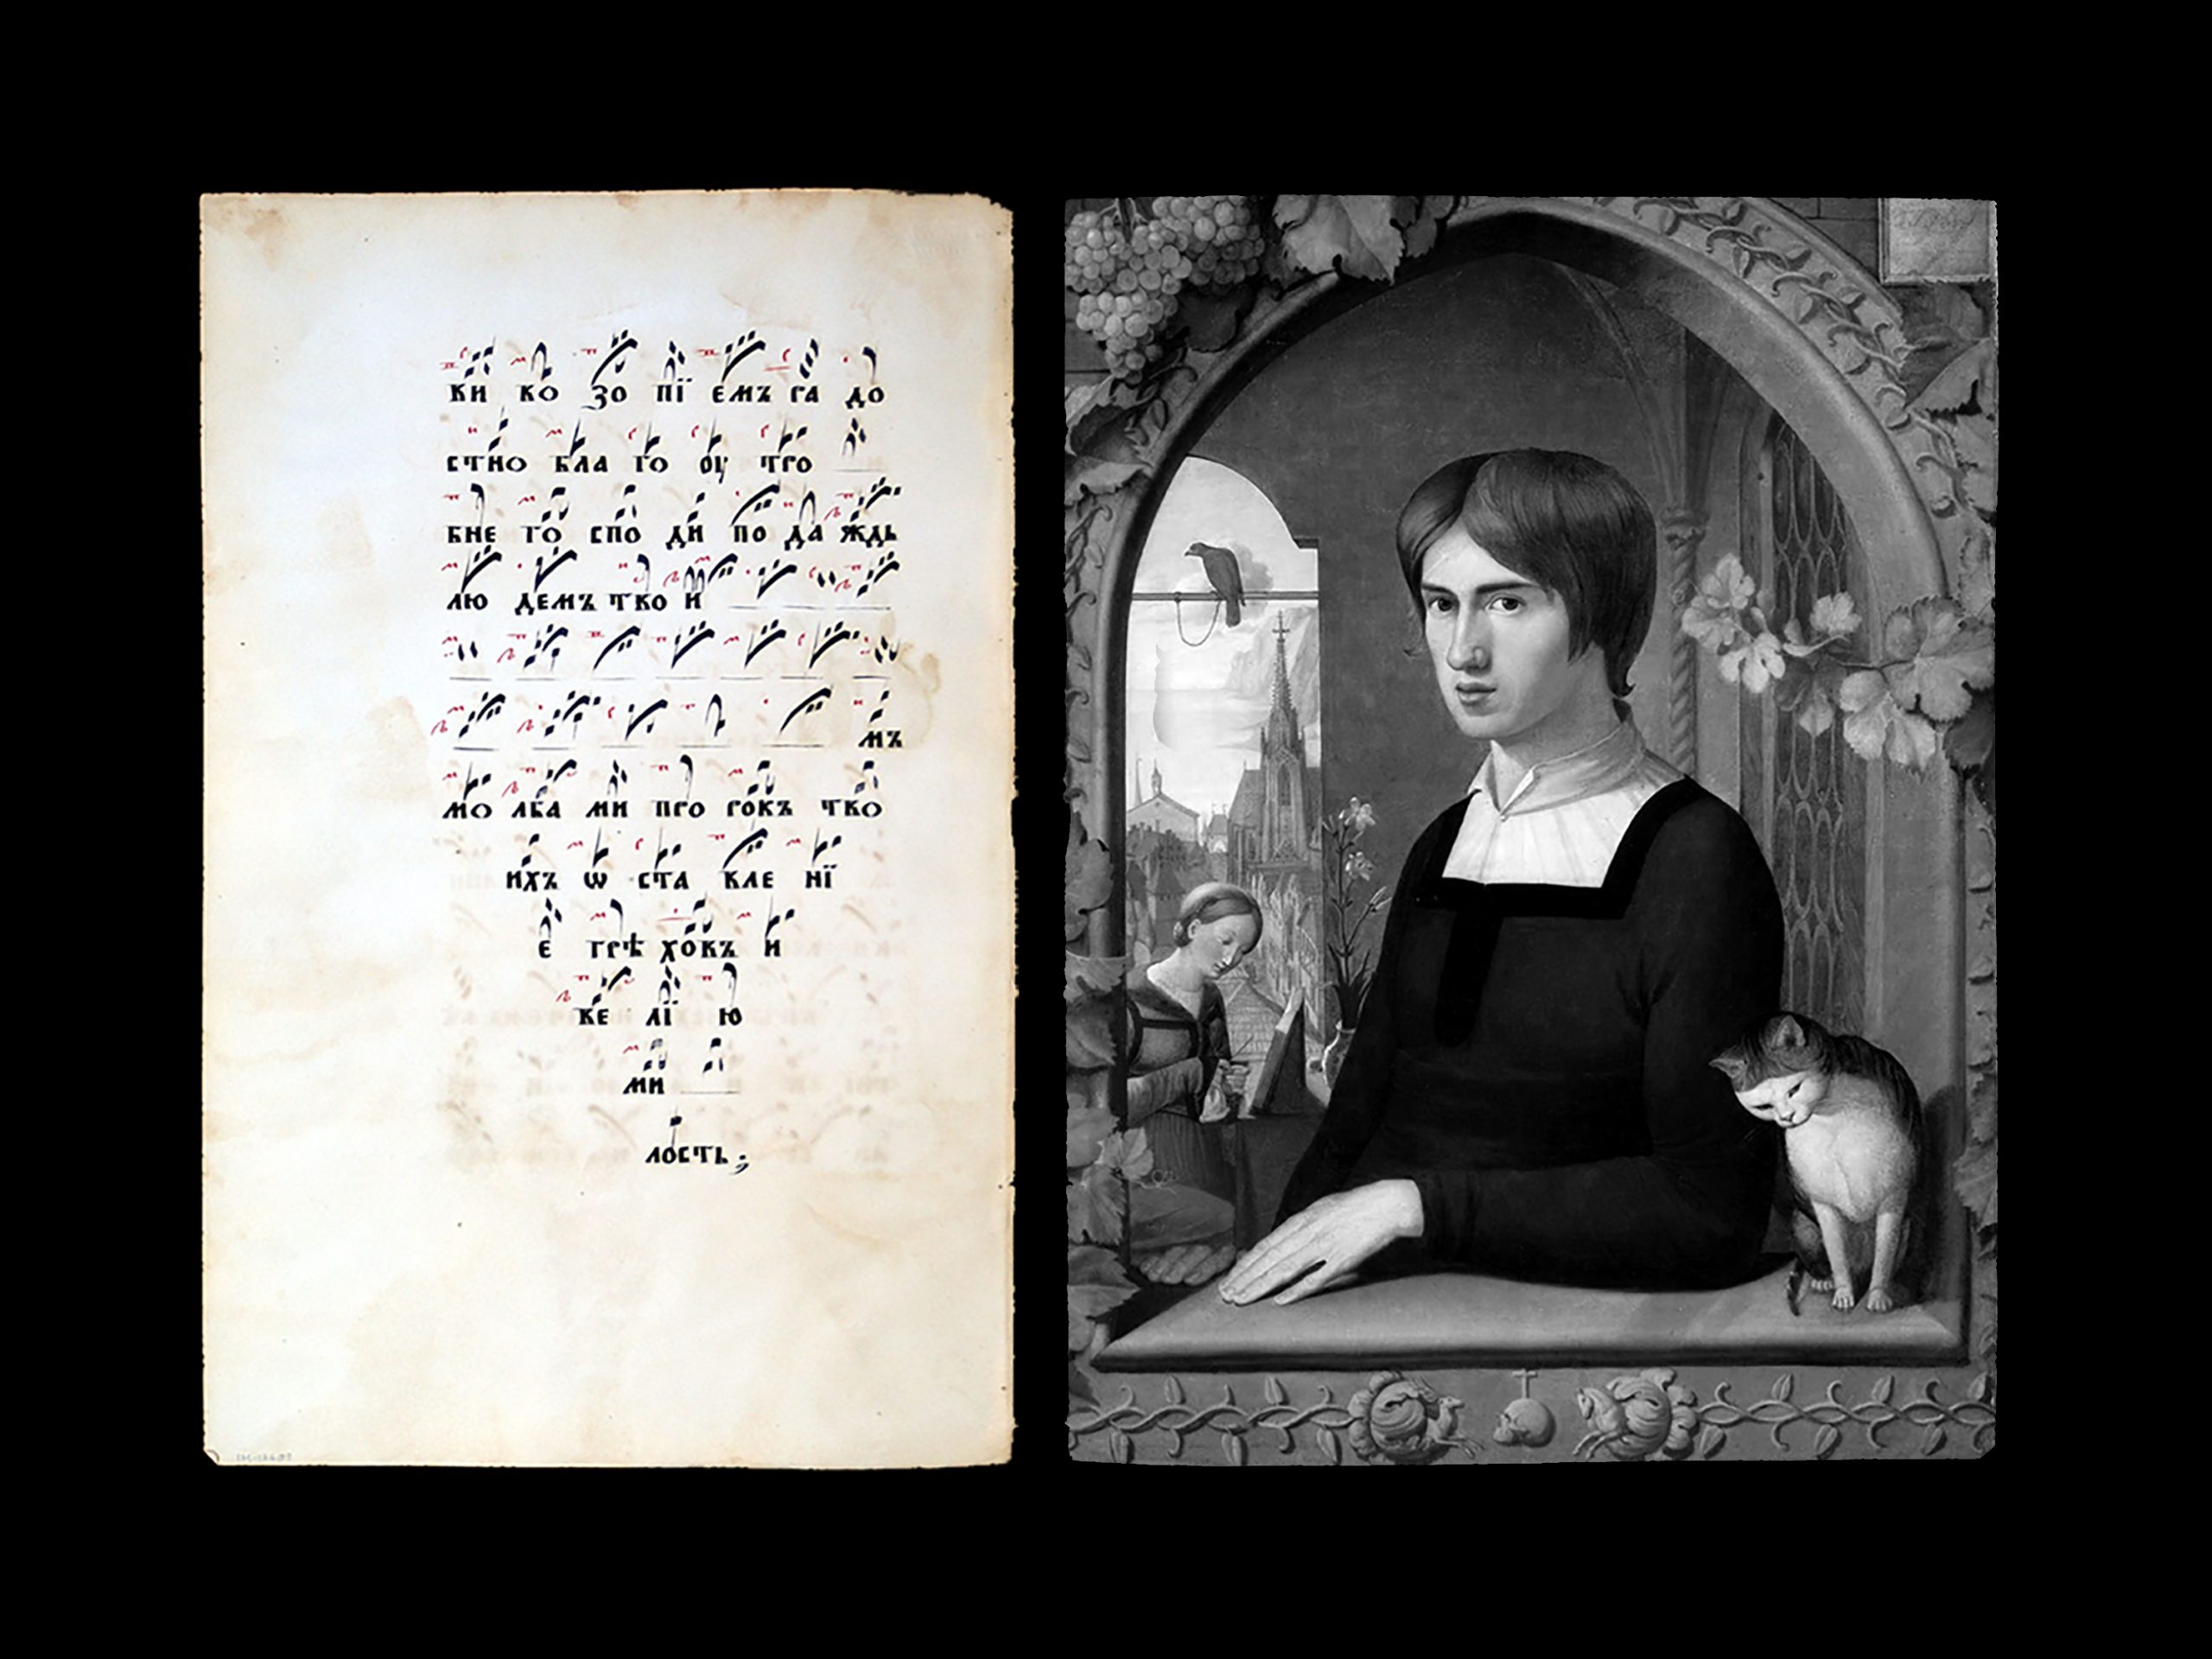 ки ко зо пї емъ га до
стно бла го оу тро
бне го спо ди по да ждь
лю демъ тво и
мъ
мо лба ми про рокъ тво
ихъ ѡ ста вле нї
е грѣ ховъ и
ве лї ю
ми
лость ;